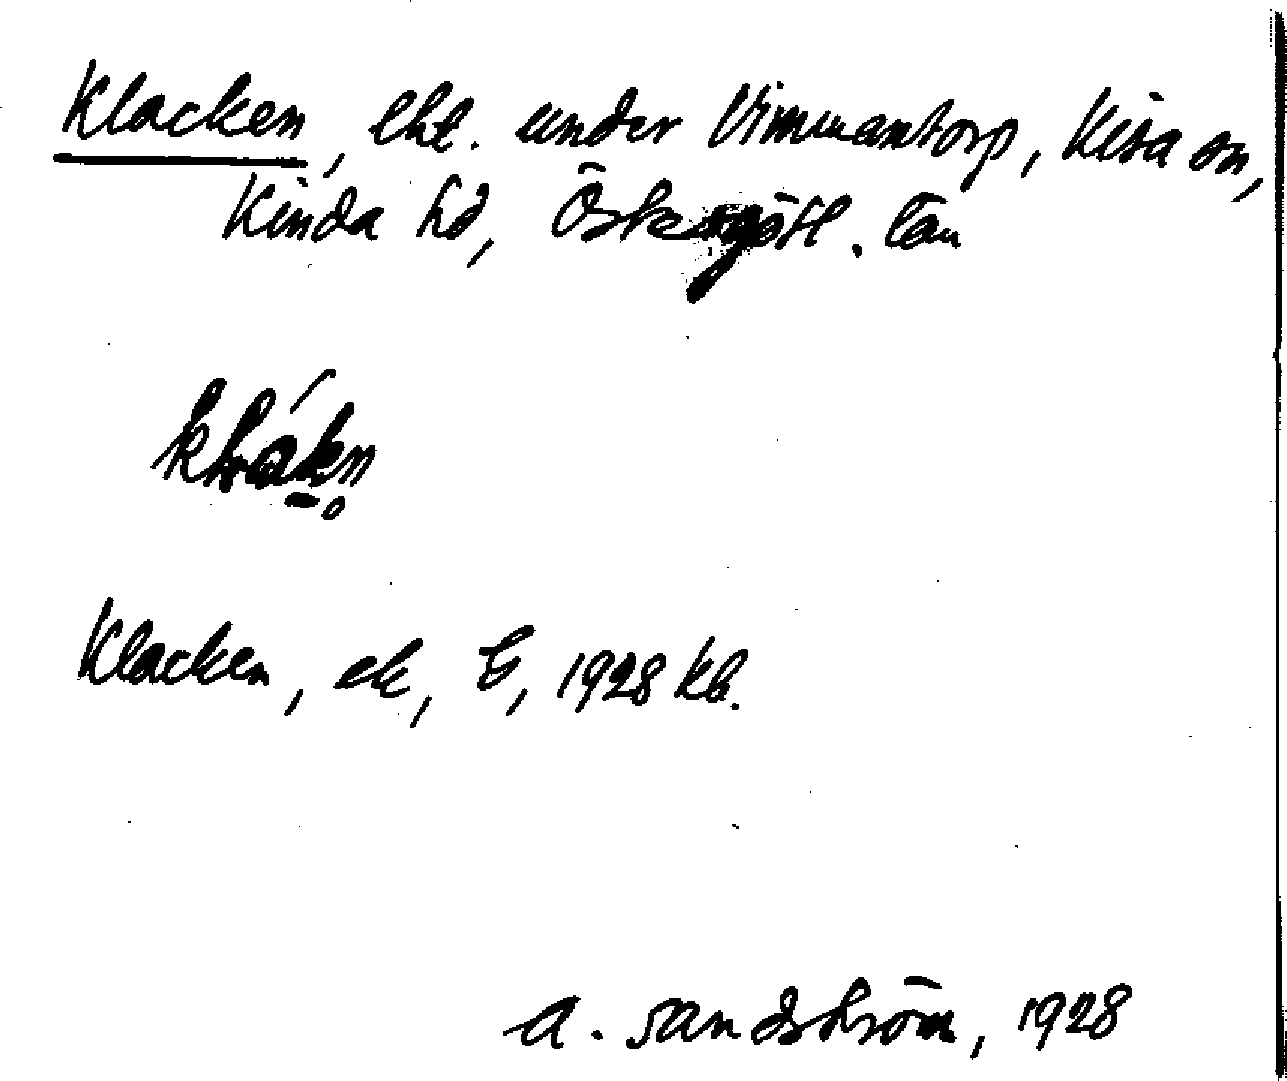 Klacken, lht. under Vimmantorp, Kisa sn,
Kinda hd, Östergötl. län
Klacken, ek, 1928 kb.
A. Sandström, 1928